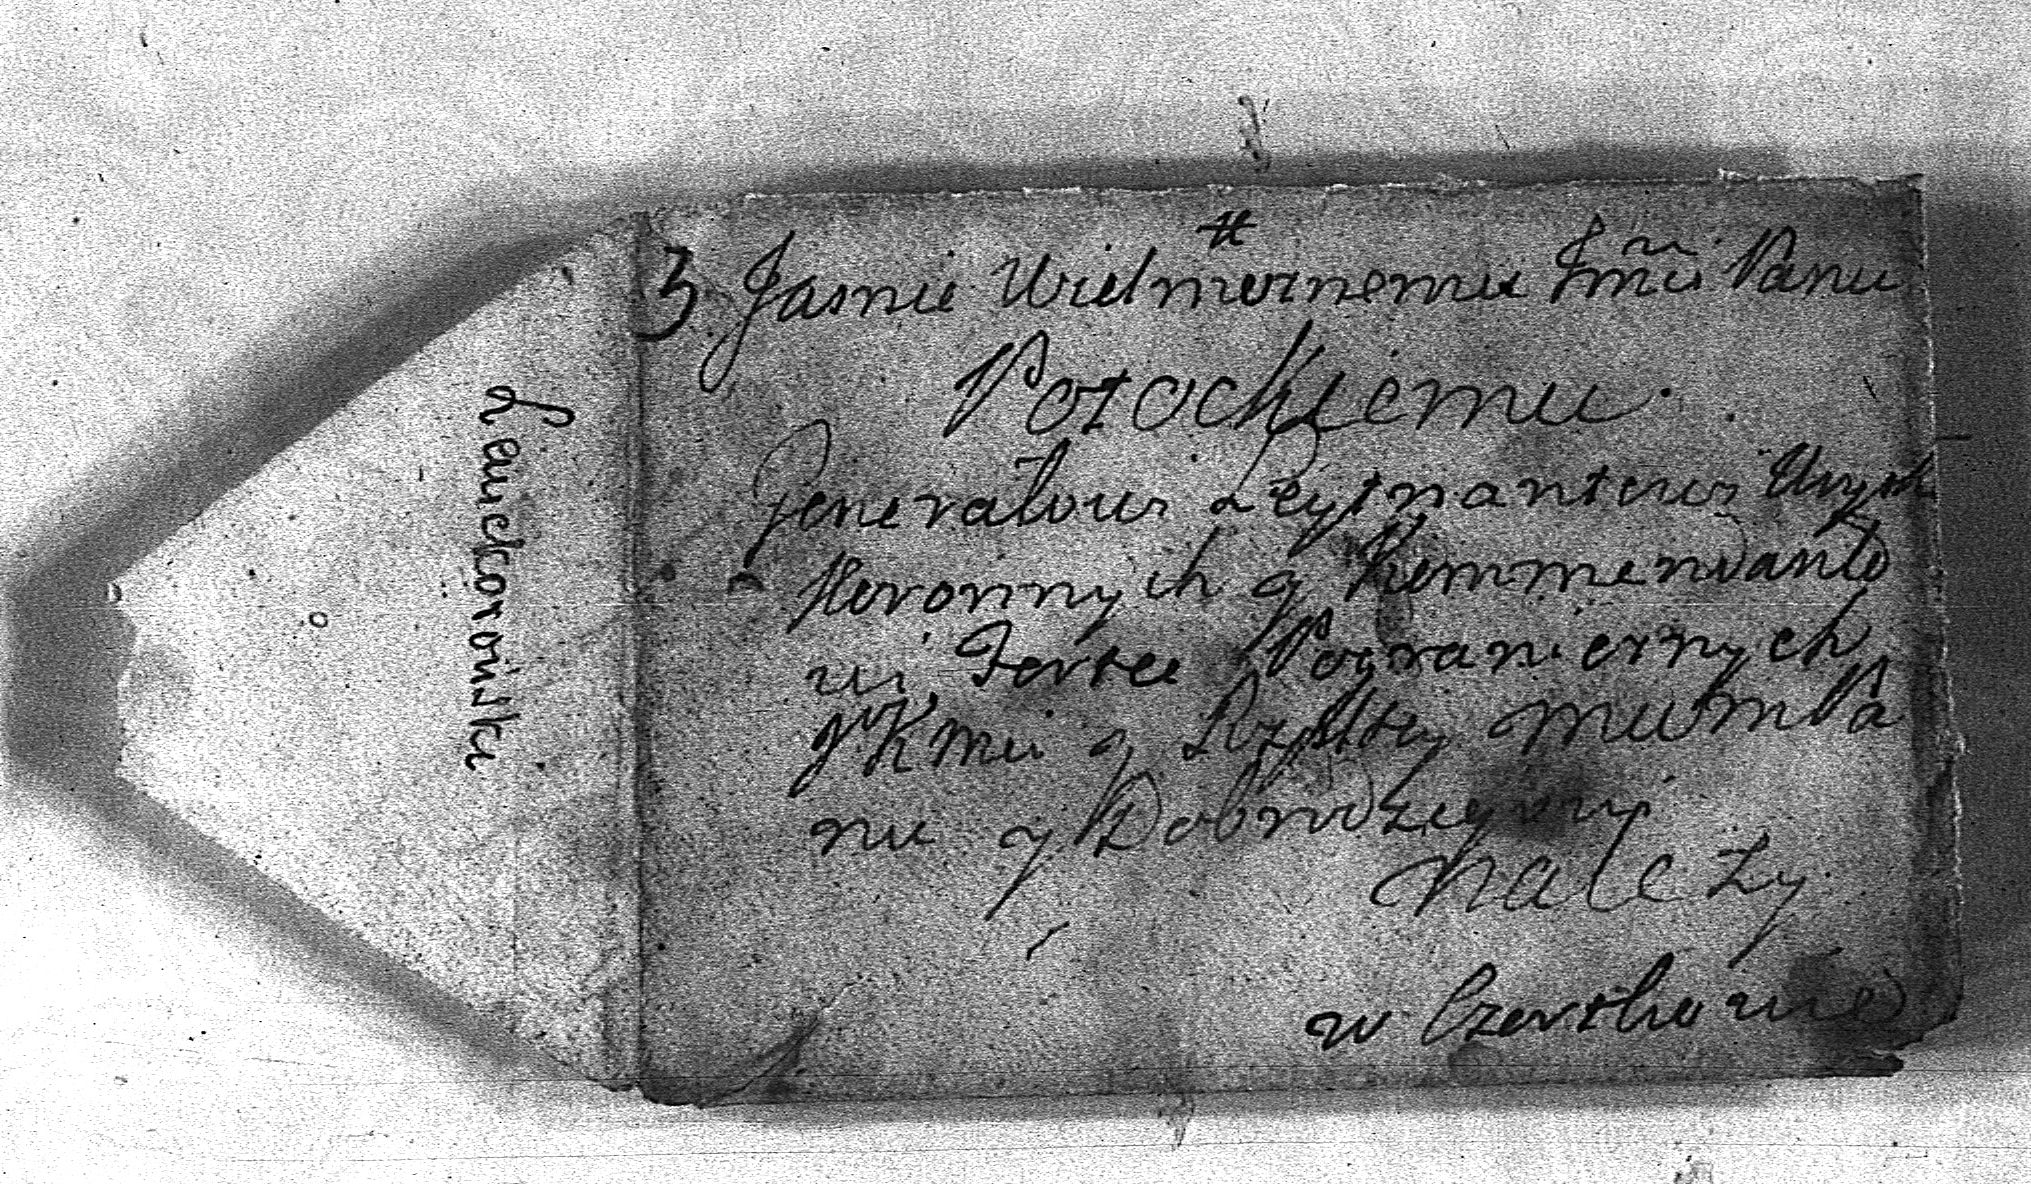 #
3 Jasnie Wielmoznemu Jmci Panu
Potockiemu.
Jenerałowi Leytnantowi Woysk
Koronnych y Kommendanto
wi Fortec Pogranicznych
JKMci y Rzpltey MWMPa
nu y Dobrodzieyowi
Należy
w Czortkowie